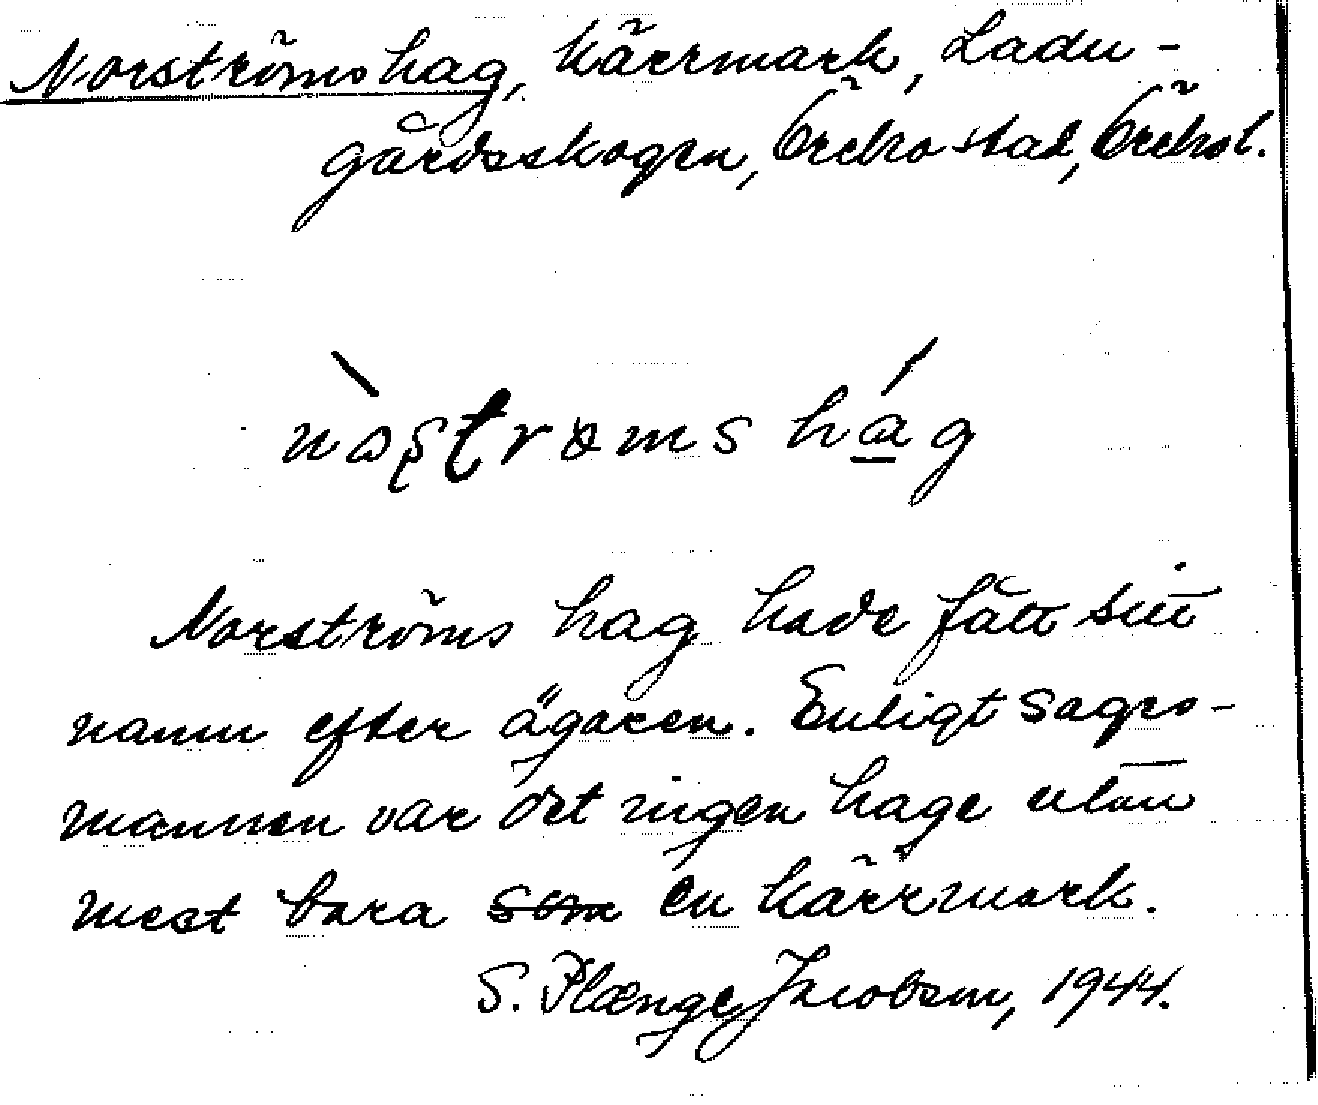 Norströms hag, kärrmark, Ladu-
gårdsskogen, Örebro stad, Örebro l.
nòʂtrøms hág
Norströms hag hade fått sitt
namn efter ägaren. Enligt sages-
mannen var det ingen hage utan
mest bara som en kärrmark.
S. Plænge Jacobson, 1944.